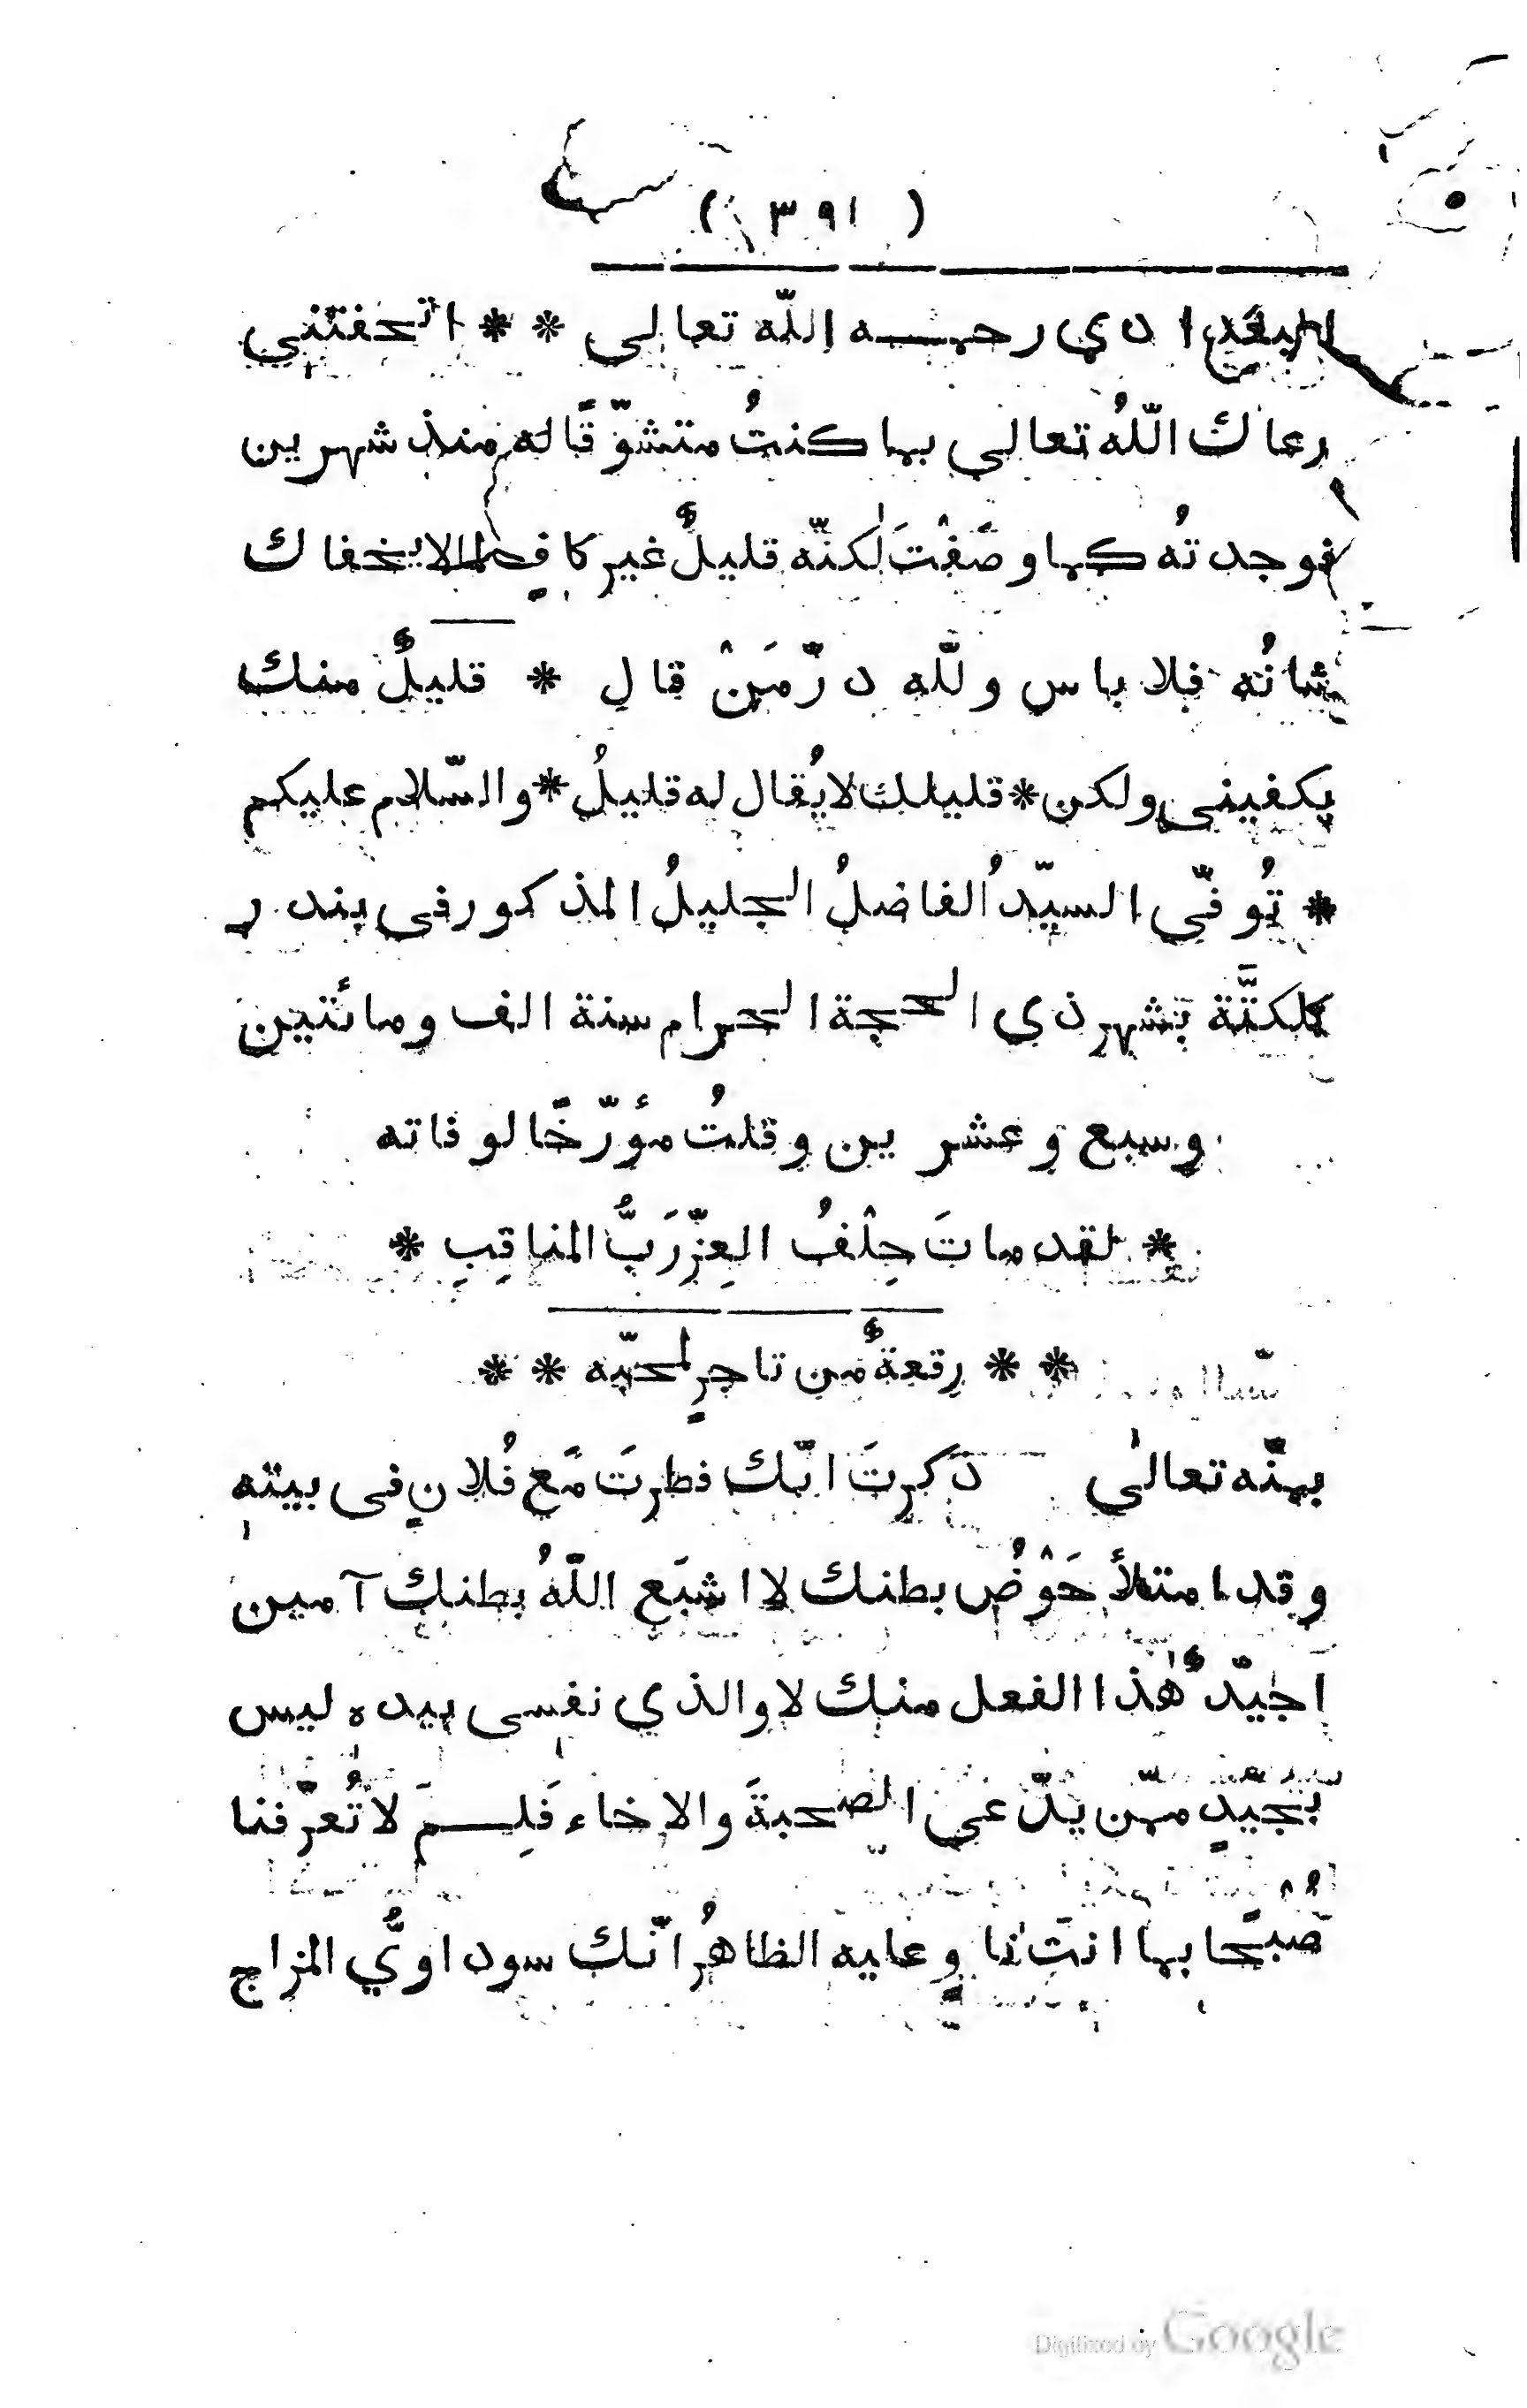 ( ٣٩١ )
البغدادي رحمه اللّه تعالى * * اتحفتني
رعاك اللّهُ تعالى بما كنتُ متشوّقًا له منذ شهرين
فوجدتُه كما وصَفْتَ لٰكنّه قليلٌ غير كافٍ لما لا يخفاك
شانُه فلا باس وللّه درّمَنْ قال * قليلٌ منك
يكفيني ولكن * قليلك لا يُقال له قليلُ * والسّلام عليكم
* تُوفّي السيّدُ الفاضلُ الجليلُ المذكور في بندر
كلكتَّة بشهر ذي الحجة الحرام سنة الف ومائتين
وسبع وعشرين وقلتُ مؤرّخًا لوفاته
* لقد ماتَ حِلْفُ العِزّرَبُّ المناقِبِ *
* * رقعةٌ من تاجرٍ لمحبّه * *
بمنّه تعالىٰ ذكرتَ انّك فطرتَ مَع فُلانٍ في بيته
وقد امتلأ حَوْضُ بطنك لا اشبَع اللّهُ بطنك آمين
اجيّدٌ هٰذا الفعل منك لا والذي نفسي بيده ليس
بجيّدٍ ممّن يدّعي الصحبةَ والاخاء فَلِمَ لا تُعرّفنا
صُبْحًا بما انتَ ناوٍ عليه الظاهرُ انّك سوداويُّ المزاج
Digitized by Google